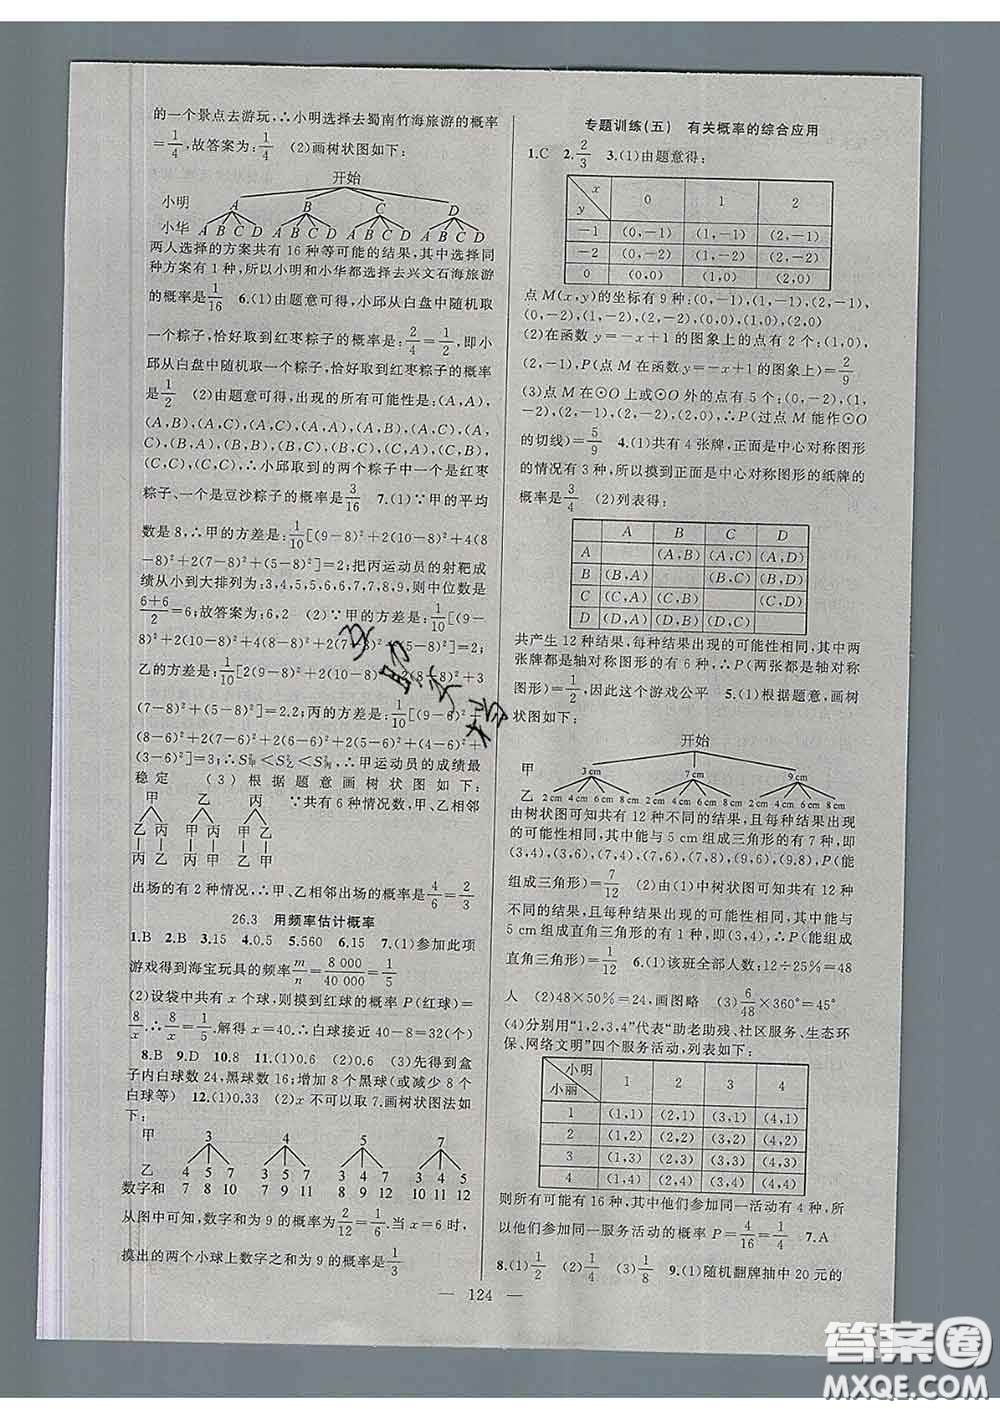 的一个景点去游玩,∴小明选择去蜀南竹海旅游的概率
是1/4,故答案为:1/4 (2)画树状图如下:
开始
小明 A B C D
小华 A B C D A B C D A B C D A B C D
两人选择的方案共有 16 种等可能的结果,其中选择同
种方案有 1 种,所以小明和小华都选择去兴文石海旅游
的概率是1/16 6.(1)由题意可得,小邱从白盘中随机取
一个粽子,恰好取到红枣粽子的概率是:2/4=1/2,即小
邱从白盘中随机取一个粽子,恰好取到红枣粽子的概率
是1/2 (2)由题意可得,出现的所有可能性是:(A,A),
(A,B),(A,C),(A,C),(A,A),(A,B),(A,C),(A,
C),(B,A),(B,B),(B,C),(B,C),(C,A),(C,B),
(C,C),(C,C),∴小邱取到的两个粽子中一个是红枣
粽子、一个是豆沙粽子的概率是3/16 7.(1)∵甲的平均
数是8,∴甲的方差是:1/10[(9-8)²+2(10-8)²+4(8
-8)²+2(7-8)²+(5-8)²]=2;把丙运动员的射靶成
绩从小到大排列为:3,4,5,5,6,6,7,7,8,9,则中位数是
(6+6)/2=6;故答案为:6,2 (2)∵甲的方差是:1/10[(9-
8)²+2(10-8)²+4(8-8)²+2(7-8)²+(5-8)²]=2;
乙的方差是:1/10[2(9-8)²+2(10-8)²+2(8-8)²+3
(7-8)²+(5-8)²]=2.2;丙的方差是:1/10[(9-6)²+
(8-6)²+2(7-6)²+2(6-6)²+2(5-6)²+(4-6)²+
(3-6)²]=3;∴S²甲<S²乙<S²丙,∴甲运动员的成绩最
稳定 (3)根据题意画树状图如下:
甲 乙 丙 ∵共有6种情况数,甲、乙相邻
乙 丙 甲 丙 甲 乙
丙 乙 丙 甲 乙 甲
出场的有 2 种情况,∴甲、乙相邻出场的概率是4/6=2/3
26.3 用频率估计概率
1.B 2.B 3.15 4.0.5 5.560 6.15 7.(1)参加此项
游戏得到海宝玩具的频率m/n=8 000/40 000=1/5
(2)设袋中共有 x 个球,则摸到红球的概率 P(红球)=
8/x,∴8/x=1/5.解得 x=40.∴白球接近 40-8=32(个)
8.B 9.D 10.8 11.(1)0.6 (2)0.6 (3)先得到盒
子内白球数 24,黑球数 16;增加 8 个黑球(或减少 8 个
白球等) 12.(1)0.33 (2)x 不可以取 7.画树状图法如
下:
甲 3 4 5 7
乙 4 5 7 3 5 7 3 4 7 3 4 5
数字和 7 8 10 7 9 11 8 9 12 10 11 12
从图中可知,数字和为 9 的概率为2/12=1/6.当 x=6 时,
摸出的两个小球上数字之和为 9 的概率是1/3
专题训练(五) 有关概率的综合应用
1.C 2.2/3 3.(1)由题意得:
x y 0 1 2
-1 (0,-1) (1,-1) (2,-1)
-2 (0,-2) (1,-2) (2,-2)
0 (0,0) (1,0) (2,0)
点 M(x,y)的坐标有 9 种:(0,-1),(1,-1),(2,-1),
(0,-2),(1,-2),(2,-2),(0,0),(1,0),(2,0)
(2)在函数 y=-x+1 的图象上的点有 2 个:(1,0),
(2,-1),P(点 M 在函数 y=-x+1 的图象上)=2/9
(3)点 M 在⊙O 上或⊙O 外的点有 5 个:(0,-2),(1,
-2),(2,-1),(2,-2),(2,0),∴P(过点 M 能作⊙O
的切线)=5/9 4.(1)共有 4 张牌,正面是中心对称图形
的情况有 3 种,所以摸到正面是中心对称图形的纸牌的
概率是3/4 (2)列表得:
A B C D
A (A,B) (A,C) (A,D)
B (B,A) (B,C) (B,D)
C (C,A) (C,B) (C,D)
D (D,A) (D,B) (D,C)
共产生 12 种结果,每种结果出现的可能性相同,其中两
张牌都是轴对称图形的有 6 种,∴P(两张都是轴对称
图形)=1/2,因此这个游戏公平 5.(1)根据题意,画树
状图如下:
开始
甲 3 cm 7 cm 9 cm
乙 2 cm 4 cm 6 cm 8 cm 2 cm 4 cm 6 cm 8 cm 2 cm 4 cm 6 cm 8 cm
由树状图可知共有 12 种不同的结果,且每种结果出现
的可能性相同,其中能与 5 cm 组成三角形的有 7 种,即
(3,4),(3,6),(7,4),(7,6),(7,8),(9,6),(9,8),P(能
组成三角形)=7/12 (2)由(1)中树状图可知共有 12 种
不同的结果,且每种结果出现的可能性相同,其中能与
5 cm组成直角三角形的有 1 种,即(3,4),∴P(能组成
直角三角形)=1/12 6.(1)该班全部人数:12÷25%=48
人 (2)48×50%=24,画图略 (3)6/48×360°=45°
(4)分别用“1,2,3,4”代表“助老助残、社区服务、生态环
保、网络文明”四个服务活动,列表如下:
小明 小丽 1 2 3 4
1 (1,1) (2,1) (3,1) (4,1)
2 (1,2) (2,2) (3,2) (4,2)
3 (1,3) (2,3) (3,3) (4,3)
4 (1,4) (2,4) (3,4) (4,4)
则所有可能有 16 种,其中他们参加同一活动有 4 种,所
以他们参加同一服务活动的概率 P=4/16=1/4 7.A
8.(1)1/2 (2)1/4 (3)1/8 9.(1)随机翻牌抽中 20 元的
— 124 —
答案圈
MXQE.COM